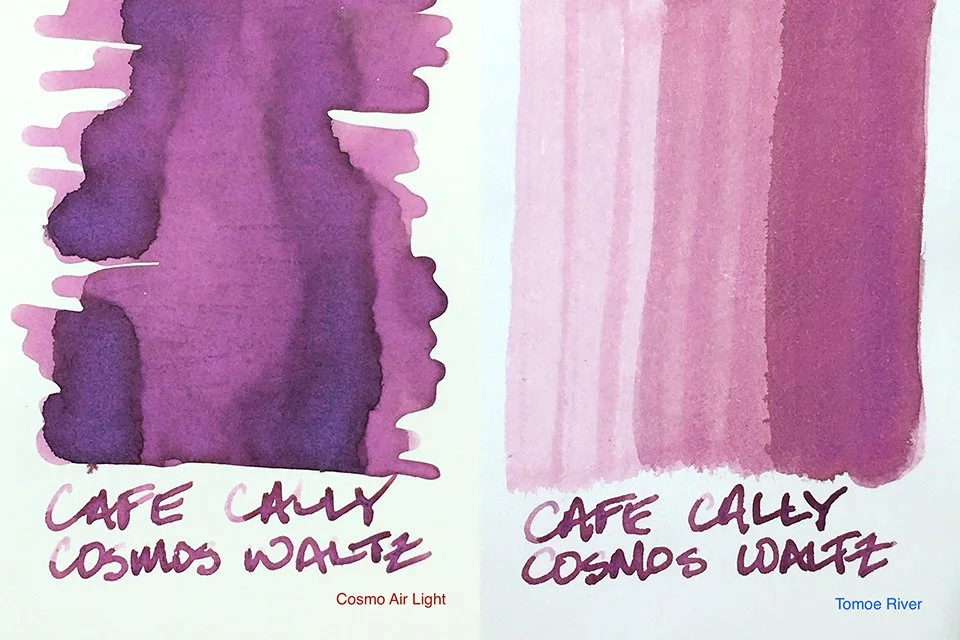 CAFE CALLY
COSMOS WALTZ
Cosmo Air Light
CAFE CALLY
COSMOS WALTZ
Tomoe River